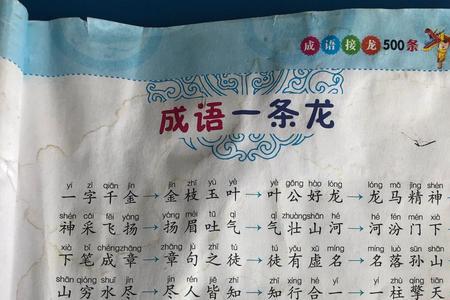 成语接龙500条
成语一条龙
yí zì qiān jīn jīn zhī yù yè yè gōng hào lóng lóng mǎ jīng shén
一字千金→金枝玉叶→叶公好龙→龙马精神
shén cǎi fēi yáng yáng méi tǔ qì qì zhuàng shān hé hé fén mén xià
神采飞扬→扬眉吐气→气壮山河→河汾门下
xià bǐ chéng zhāng zhāng jù zhī tú tú yǒu xū míng míng luò sūn shān
下笔成章→章句之徒→徒有虚名→名落孙山
shān qióng shuǐ jìn jìn rén jiē zhī zhī xíng hé yī yí zhù qíng tiān
山穷水尽→尽人皆知→知行合一→一柱擎天